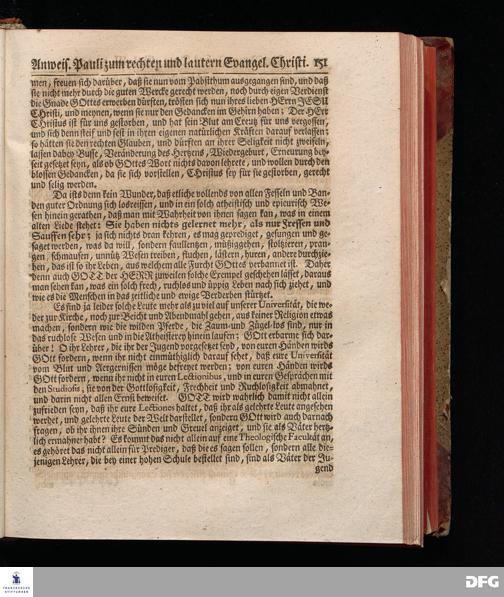 Anweis. Pauli zum rechten und lautern Evangel. Christi. 151
men, freuen sich darüber, daß sie nun vom Pabstthum ausgegangen sind, und daß
sie nicht mehr durch die guten Wercke gerecht werden, noch durch eigen Verdienst
die Gnade GOttes erwerben dürften, trösten sich nun ihres lieben HErrn JESU
CHristi, und meynen, wenn sie nur den Gedancken im Gehirn haben: Der HErr
CHristus ist für uns gestorben, und hat sein Blut am Creutz für uns vergossen,
und sich denn steif und fest in ihren eigenen natürlichen Kräften darauf verlassen;
so hätten sie den rechten Glauben, und dürften an ihrer Seligkeit nicht zweifeln,
lassen dabey Busse, Veränderung des Hertzens, Wiedergeburt, Erneurung bey-
seit gesetzet seyn, als ob GOttes Wort nichts davon lehrete, und wollen durch den
blossen Gedancken, da sie sich vorstellen, CHristus sey für sie gestorben, gerecht
und selig werden.
Da ists denn kein Wunder, daß etliche vollends von allen Fesseln und Ban-
den guter Ordnung sich losreissen, und in ein solch atheistisch und epicurisch We-
sen hinein gerathen, daß man mit Wahrheit von ihnen sagen kan, was in einem
alten Liede stehet: Sie haben nichts gelernet mehr, als nur Fressen und
Sauffen sehr; ja sich nichts dran kehren, es mag geprediget, gesungen und ge-
saget werden, was da will, sondern faullentzen, müßiggehen, stolzieren, pran-
gen, schmausen, unnütz Wesen treiben, fluchen, lästern, huren, andere durchzie-
hen, das ist so ihr Leben, aus welchem alle Furcht GOttes verbannet ist. Daher
denn auch GOTT der HERR zuweilen solche Exempel geschehen lässet, daraus
man sehen kan, was ein solch frech, ruchlos und üppig Leben nach sich ziehet, und
wie es die Menschen in das zeitliche und ewige Verderben stürtzet.
Es sind ja leider solche Leute mehr als zu viel auf unserer Universität, die we-
der zur Kirche, noch zur Beicht und Abendmahl gehen, aus keiner Religion etwas
machen, sondern wie die wilden Pferde, die Zaum- und Zügel-los sind, nur in
das ruchlose Wesen und in die Atheisterey hinein laufen: GOtt erbarme sich dar-
über! O ihr Lehrer, die ihr der Jugend vorgesetzet seyd, von euren Händen wirds
GOtt fordern, wenn ihr nicht einmüthiglich darauf sehet, daß eure Universität
vom Wust und Aergernissen möge befreyet werden: von euren Händen wirds
GOtt fordern, wenn ihr nicht in euren Lectionibus, und in euren Gesprächen mit
den Studiosis, sie von der Gottlosigkeit, Frechheit und Ruchlosigkeit abmahnet,
und darin nicht allen Ernst beweiset. GOTT wird wahrlich damit nicht allein
zufrieden seyn, daß ihr eure Lectiones haltet, daß ihr als gelehrte Leute angesehen
werdet, und gelehrte Leute der Welt darstellet, sondern GOtt wird auch darnach
fragen, ob ihr ihnen ihre Sünden und Greuel anzeiget, und sie als Väter hertz-
lich ermahnet habt? Es kommt das nicht allein auf eine Theologische Facultät an,
es gehöret das nicht allein für Prediger, daß die es sagen sollen, sondern alle die-
jenigen Lehrer, die bey einer hohen Schule bestellet sind, sind als Väter der Ju-
gend
FRANCKESCHE STIFTUNGEN
DFG